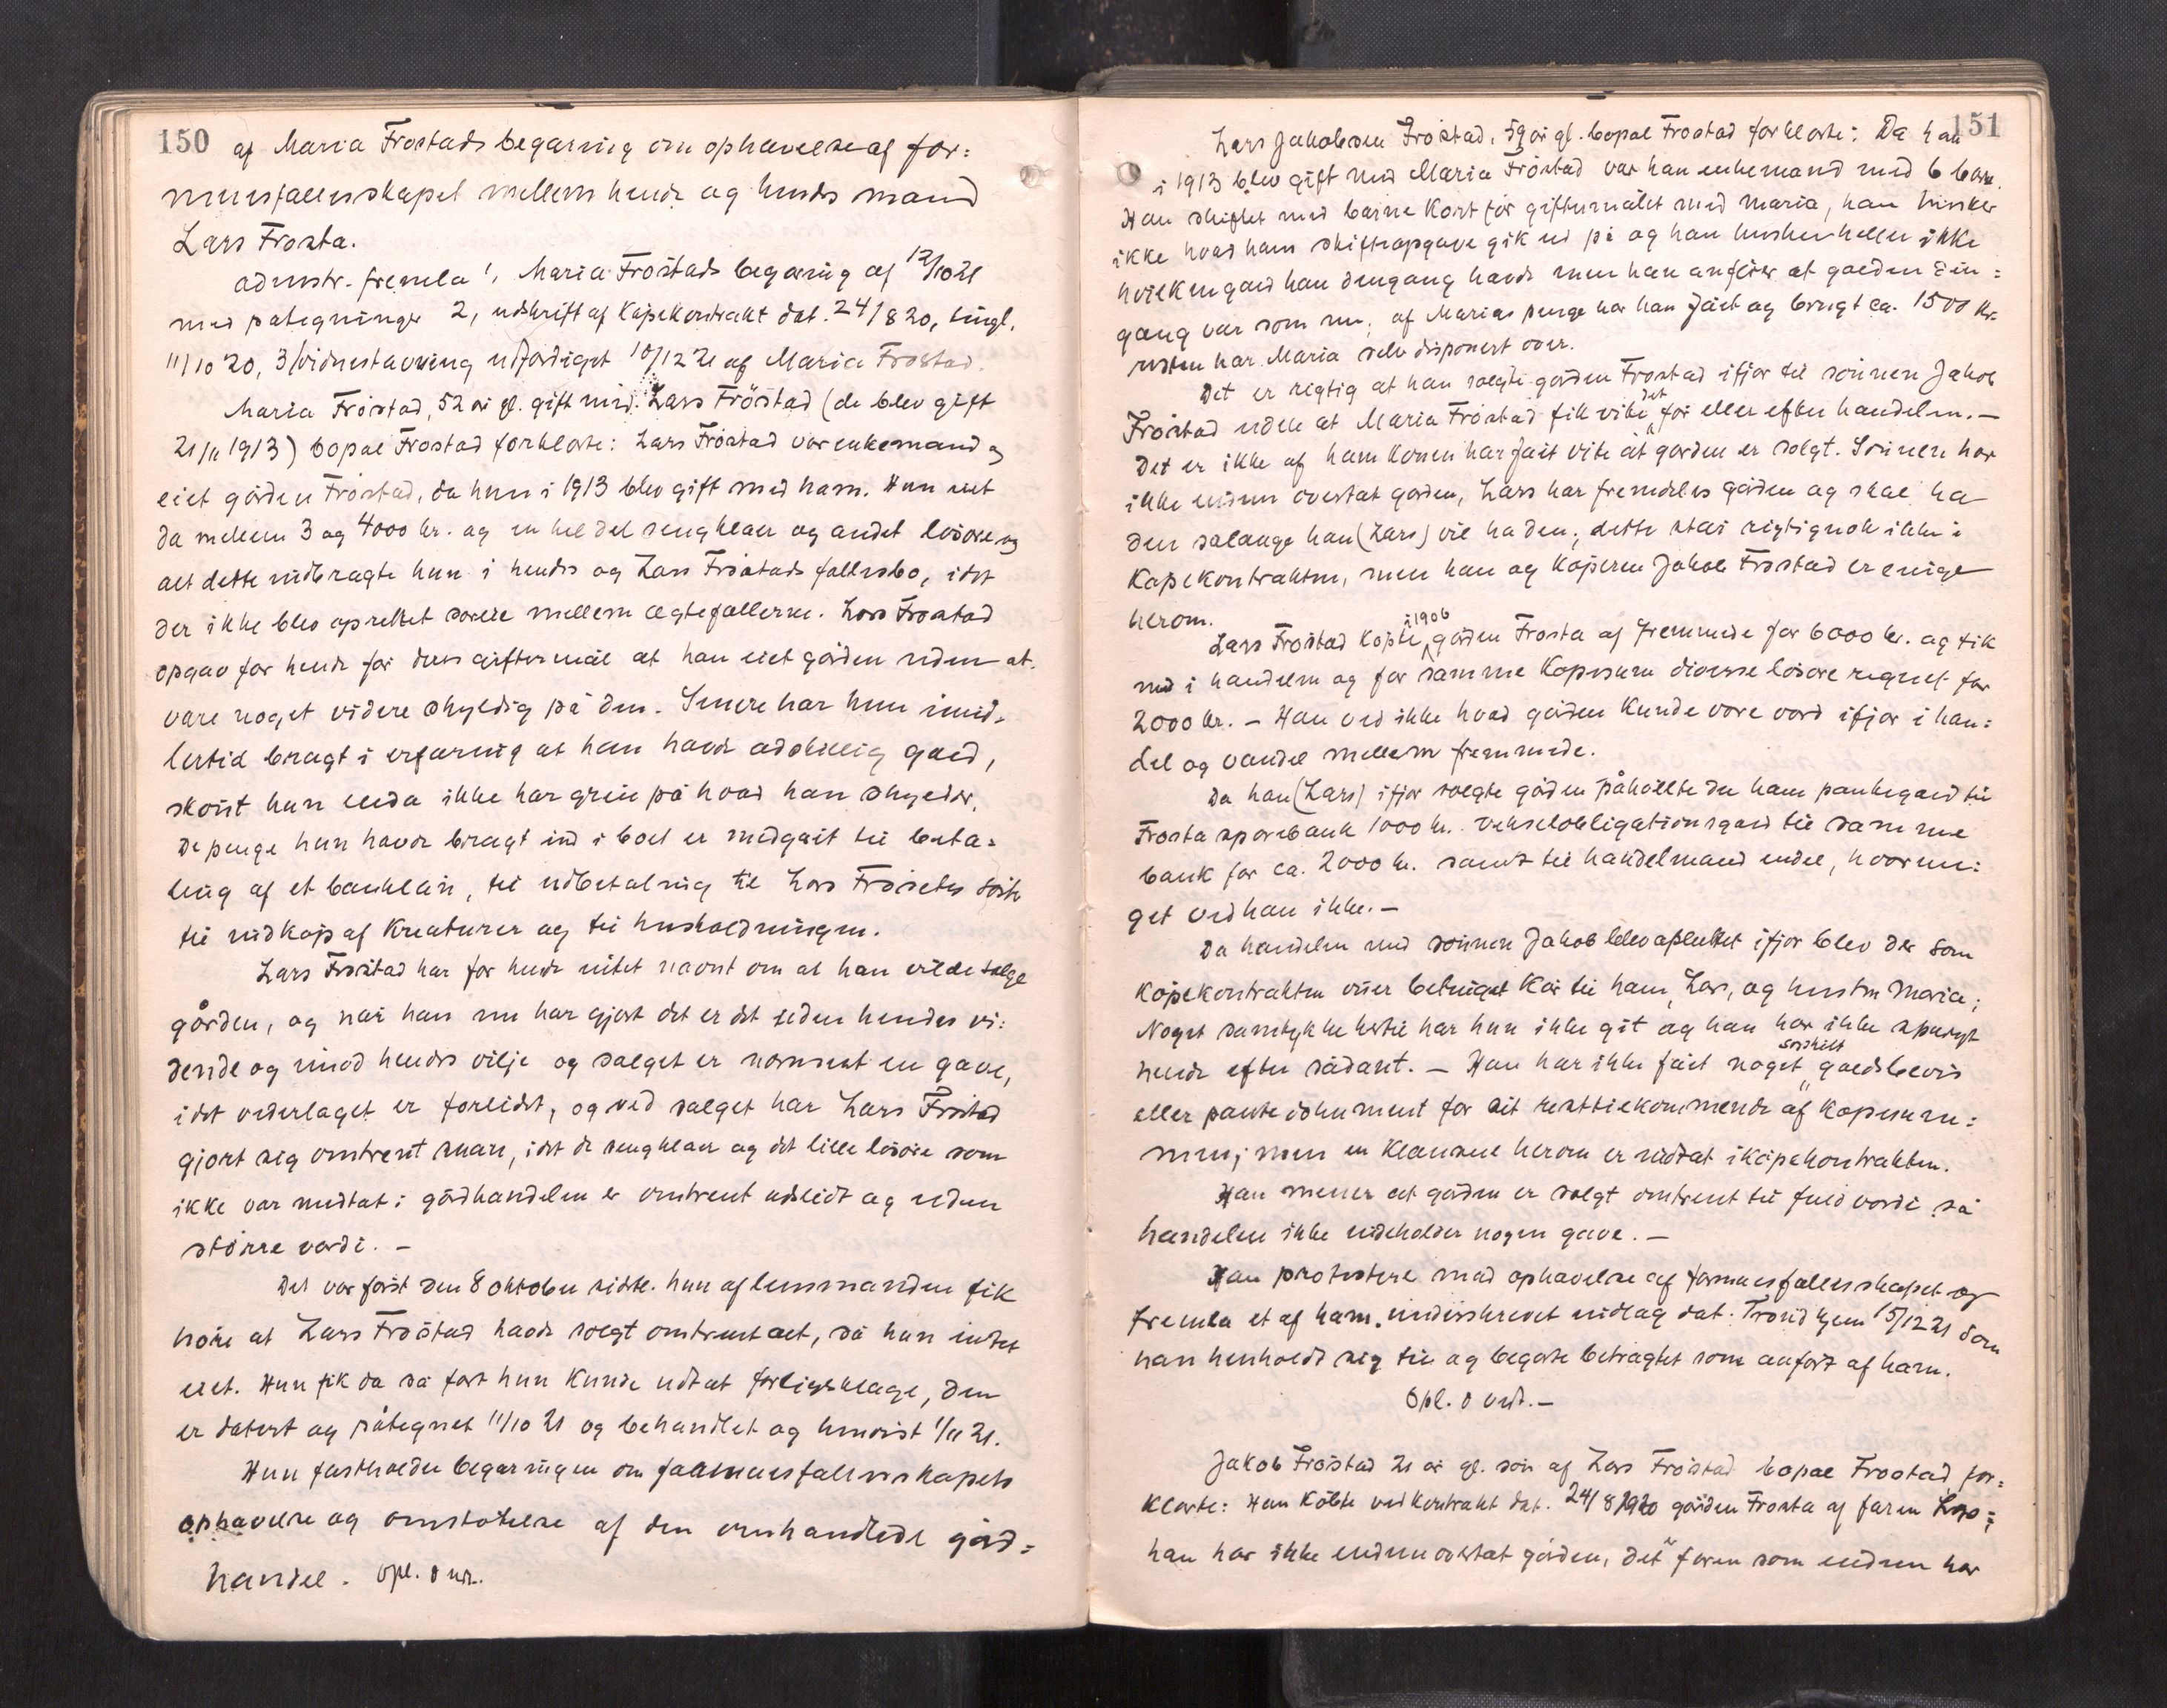 150 af Maria Frostads begæring om ophævelse af for=
muesfællesskapet mellem hende og hendes mand
Lars Frosta.
Admstr. fremla 1, Maria Frøstads begæring af 12/10 21
med påtegninger 2, udskrift af Køpekontrakt dat. 24/8 20, tingl.
11/10 20, 3/ vidnestævning udfærdiget 10/12 21 af Maria Frøstad.
Maria Frøstad, 52 år gl. gift med Lars Frøstad (de blev gift
21/11 1913) bopæl Frøstad forklarte: Lars Frøstad var enkemand og
eiet gården Frøstad, da hun i 1913 blev gift med ham. Hun eiet
da mellem 3 og 4000 kr. og en hel del sengklær og andet løsøre og
alt dette indbragte hun i hendes og Lars Frøstads fællesbo, idet
der ikke blev oprettet særeie mellem ægtefællerne. Lars Frøstad
opgav for hende før deres giftermål at han eiet gården uden at
være noget videre skyldig på den. Senere har hun imid=
lertid bragt i erfaring at han havde adskillig gæld,
skønt hun enda ikke har grei på hvad han skylder.
De penge hun havde bragt ind i boet er medgåt til beta=
ling af et banklån, til udbetaling til Lars Frøstads søster
til indkøp af kreaturer og til husholdningen.
Lars Frøstad har for hende intet nævnt om at han vilde sælge
gården, og når han nu har gjort det er det uden hendes vi=
dende og imod hendes vilje og salget er nærmest en gave,
idet vederlaget er forlidet, og ved salget har Lars Frøstad
gjort sig omtrent svær, idet de sengklær og det lille løsøre som
ikke var medtat i gårdhandelen er omtrent udslidt og uden
større værdi. –
Det var først den 8 oktober sidstl. hun af lensmanden fik
høre at Lars Frøstad havde solgt omtrent alt, så hun intet
eiet. Hun fik da så fort hun kunde udtat forligsklage, den
er datert og påtegnet 11/10 21 og behandlet og henvist 1/11 21.
Hun fastholder begæringen om formuesfællesskapets
ophævelse og omstøtelse af den omhandlede gård=
handel. Opl. o ved.
151
Lars Jakobsen Frøstad, 59 år gl. bopæl Frøstad forklarte: Da han
i 1913 blev gift med Maria Frøstad var han enkemand med 6 børn.
Han skiftet med barna kort før giftermålet med Maria, han husker
ikke hvad hans skifteopgave gik ud på og han husker heller ikke
hvilken gæld han dengang havde men han anfører at gælden den=
gang var som nu; af Marias penge har han fåt og brugt ca. 1500 kr.
resten har Maria selv disponert over.
Det er rigtig at han solgte gården Frøstad ifjor til sønnen Jakob
Frøstad uden at Maria Frøstad fik vite det før eller efter handelen. –
Det er ikke af ham konen har fåt vite at gården er solgt. Sønnen har
ikke endnu overtat gården, Lars har fremdeles gården og skal ha
den sålænge han (Lars) vil ha den; dette står rigtignok ikke i
Køpekontrakten, men han og køperen Jakob Frøstad er enige
herom.
Lars Frøstad køpte i 1906 gården Frosta af fremmede for 6000 kr. og fik
med i handelen og for samme køpesum diverse løsøre regnet for
2000 kr. – Han ved ikke hvad gården kunde være værd ifjor i han=
del og vandel mellem fremmede.
Da han (Lars) ifjor solgte gården påhvilte der ham pantegæld til
Frosta sparebank 1000 kr. vekselobligationsgæld til samme
bank for ca. 2000 kr. samt til handelmand endel, hvor me=
get ved han ikke. –
Da handelen med sønnen Jakob blev afsluttet ifjor blev der som
køpekontrakten viser betinget kår til ham, Lars, og hustru Maria;
Noget samtykke hertil har hun ikke git og han har ikke spurgt
hende efter sådant. – Han har ikke fåt noget særskilt gældsbevis
eller pantedokument for sit resttilkommende af køpesum=
men; men en klausul herom er indtat i køpekontrakten.
Han mener at gården er solgt omtrent til fuld værdi så
handelen ikke indeholder nogen gave. –
Han protesterte mod ophævelse af formuesfællesskapet og
fremla et af ham underskrevet indlæg dat. Trondhjem 15/12 21 som
han henholdt sig til og begærte betragtet som anført af ham.
Opl. o ved. –
Jakob Frøstad 21 år gl. søn af Lars Frøstad bopæl Frøstad for=
klarte: Han købte ved kontrakt dat. 24/8 1920 gården Frosta af faren Lars;
han har ikke endnu overtat gården, det er faren som endnu har